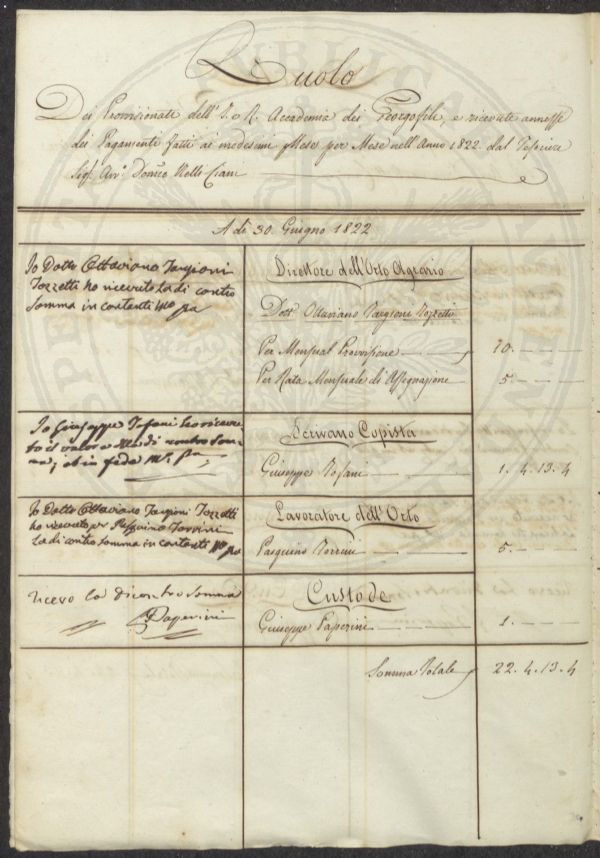 Ruolo
Dei Provisionati dell' I. e R. Accademia dei Georgofili, e ricevute annesse
dei Pagamenti fatti ai medesimi Mese per Mese nell'Anno 1822 dal Tesoriere
Sig. Avv. Dom.co Nelli Ciani
A dì 30. Giugno 1822
Io Dotto Ottaviano Targioni
Tozzetti ho ricevuto la di contro
somma in contanti mo pa
Direttore dell'Orto Agrario
Dott. Ottaviano Targioni Tozzetti
Per Mensual Provvisione 10. — — —
Per Rata Mensuale di Assegnazione 5. — — —
Io Giuseppe Tofani ho riceuu-
to il valore della di contro som-
ma; ed in fede M. pa
Scrivano Copista
Giuseppe Tofani 1. 4. 13. 4
Io Dotto Ottaviano Targioni Tozzetti
ho ricevuto per Pasquino Torrini
la di contro somma in contanti mo pa
Lavoratore dell'Orto
Pasquino Torrini 5. — — —
ricevo la dicontro somma
Paperini
Custode
Giuseppe Paperini 1. — — —
Somma Totale 22. 4. 13. 4